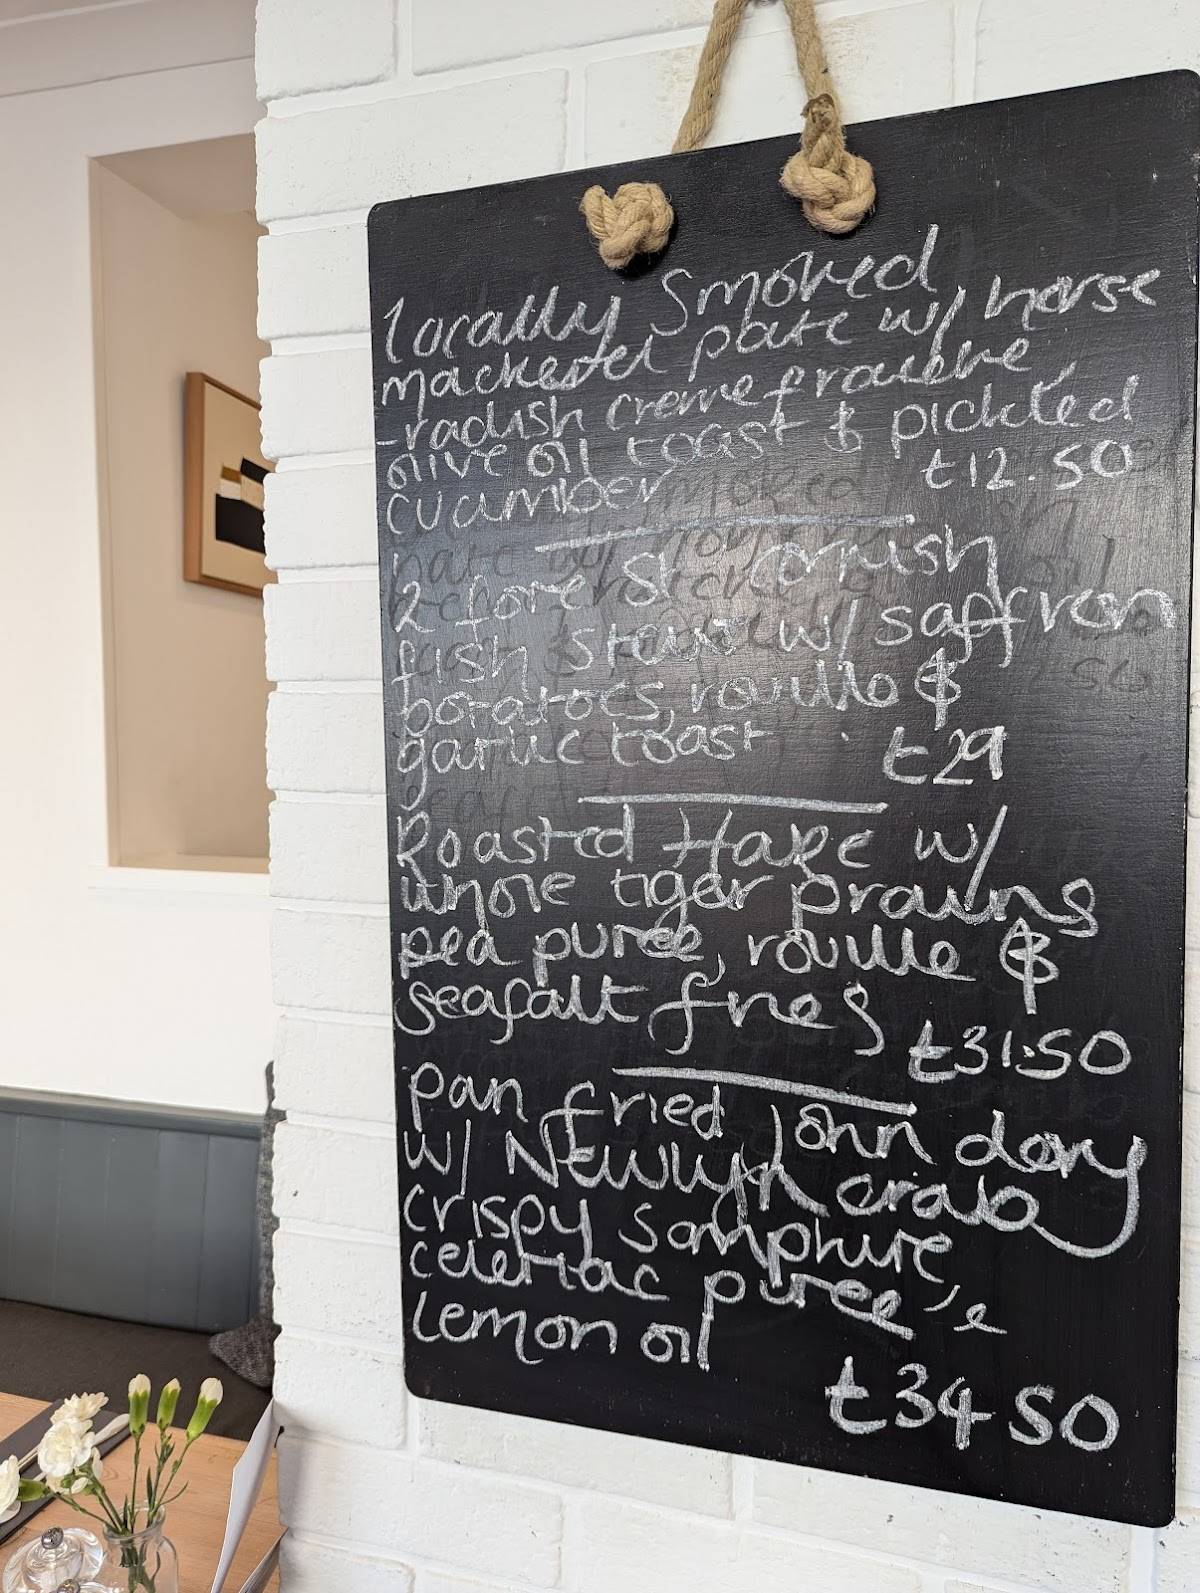 Locally Smoked
mackerel pate w/ horse
-radish creme fraiche
olive oil toast & pickled
cucumber £12.50
2 fore St Cornish
fish stew w/ saffron
potatoes, rouille &
garlic toast £29
Roasted Hake w/
whole tiger prawns
pea puree, rouille &
seasalt fries
£31.50
pan fried John dory
w/ Newlyn crab
crispy samphire,
celeriac puree, e
lemon oil
£34 50